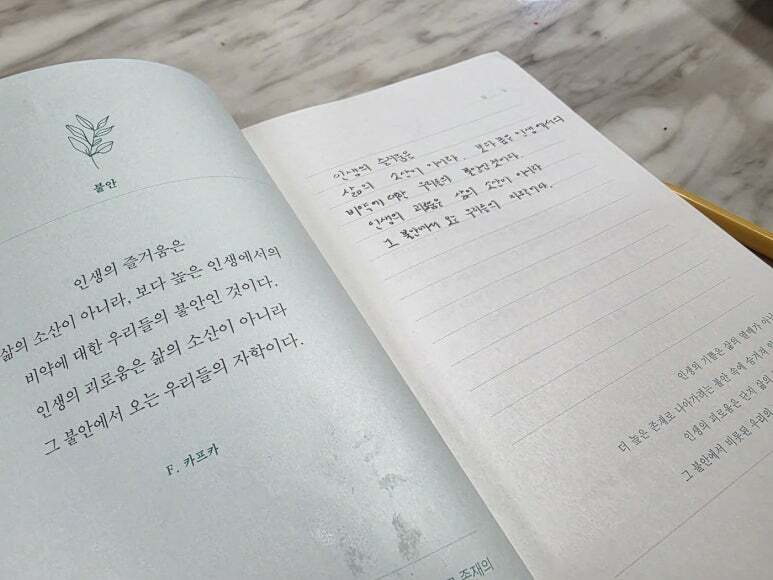 불안
인생의 즐거움은
삶의 소산이 아니라, 보다 높은 인생에서의
비약에 대한 우리들의 불안인 것이다.
인생의 괴로움은 삶의 소산이 아니라
그 불안에서 오는 우리들의 자학이다.
F. 카프카
존재의
인생의 즐거움은
삶의 소산이 아니라, 보다 높은 인생에서의
비약에 대한 우리들의 불안인 것이다.
인생의 괴로움은 삶의 소산이 아니라
그 불안에서 오는 우리들의 자학이다.
인생의 기쁨은 삶의 열매가 아니
더 높은 존재로 나아가려는 불안 속에 숨겨져 있
인생의 괴로움은 단지 삶의
그 불안에서 비롯된 우리의